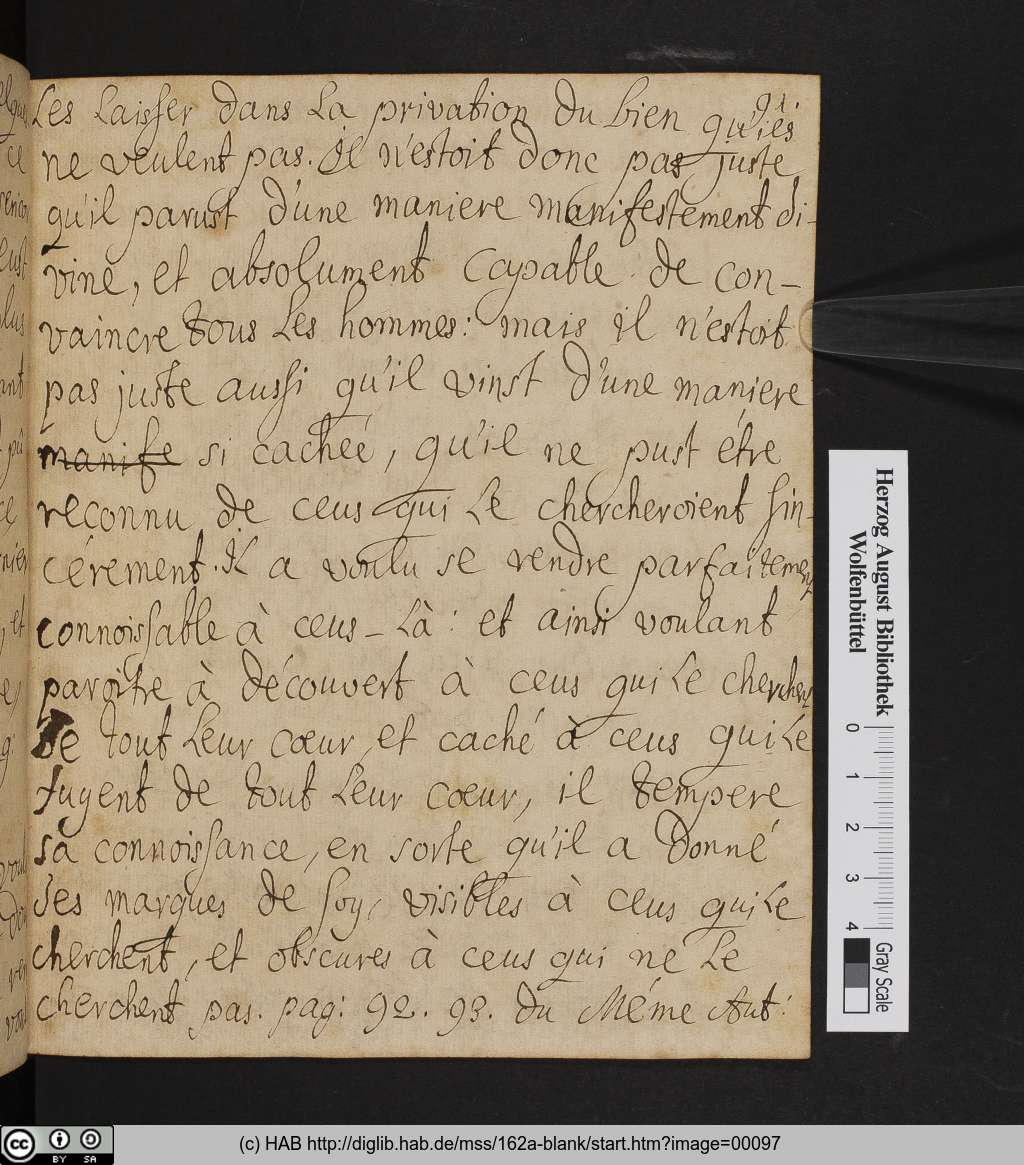 91.
Les laisser dans la privation du bien qu'ils
ne veulent pas. Il n'estoit donc pas juste
qu'il parust d'une maniere manifestement di-
vine, et absolument capable de con-
vaincre tous les hommes: mais il n'estoit
pas juste aussi qu'il vinst d'une maniere
manife si cacheé, qu'il ne pust étre
reconnu de ceus qui le chercheroient sin-
cérement. Il a voulu se rendre parfaitement
connoissable à ceus-là: et ainsi voulant
paroître à découvert à ceus qui le cherchent
de tout leur cœur, et caché à ceus qui le
fuyent de tout leur cœur, il tempere
sa connoissance, en sorte qu'il a donné
des marques de soy, visibles à ceus qui le
cherchent, et obscures à ceus qui ne le
cherchent pas. pag: 92. 93. du Méme Aut:
Herzog August Bibliothek
Wolfenbüttel
0 1 2 3 4
Gray Scale
cc BY SA
(c) HAB http://diglib.hab.de/mss/162a-blank/start.htm?image=00097